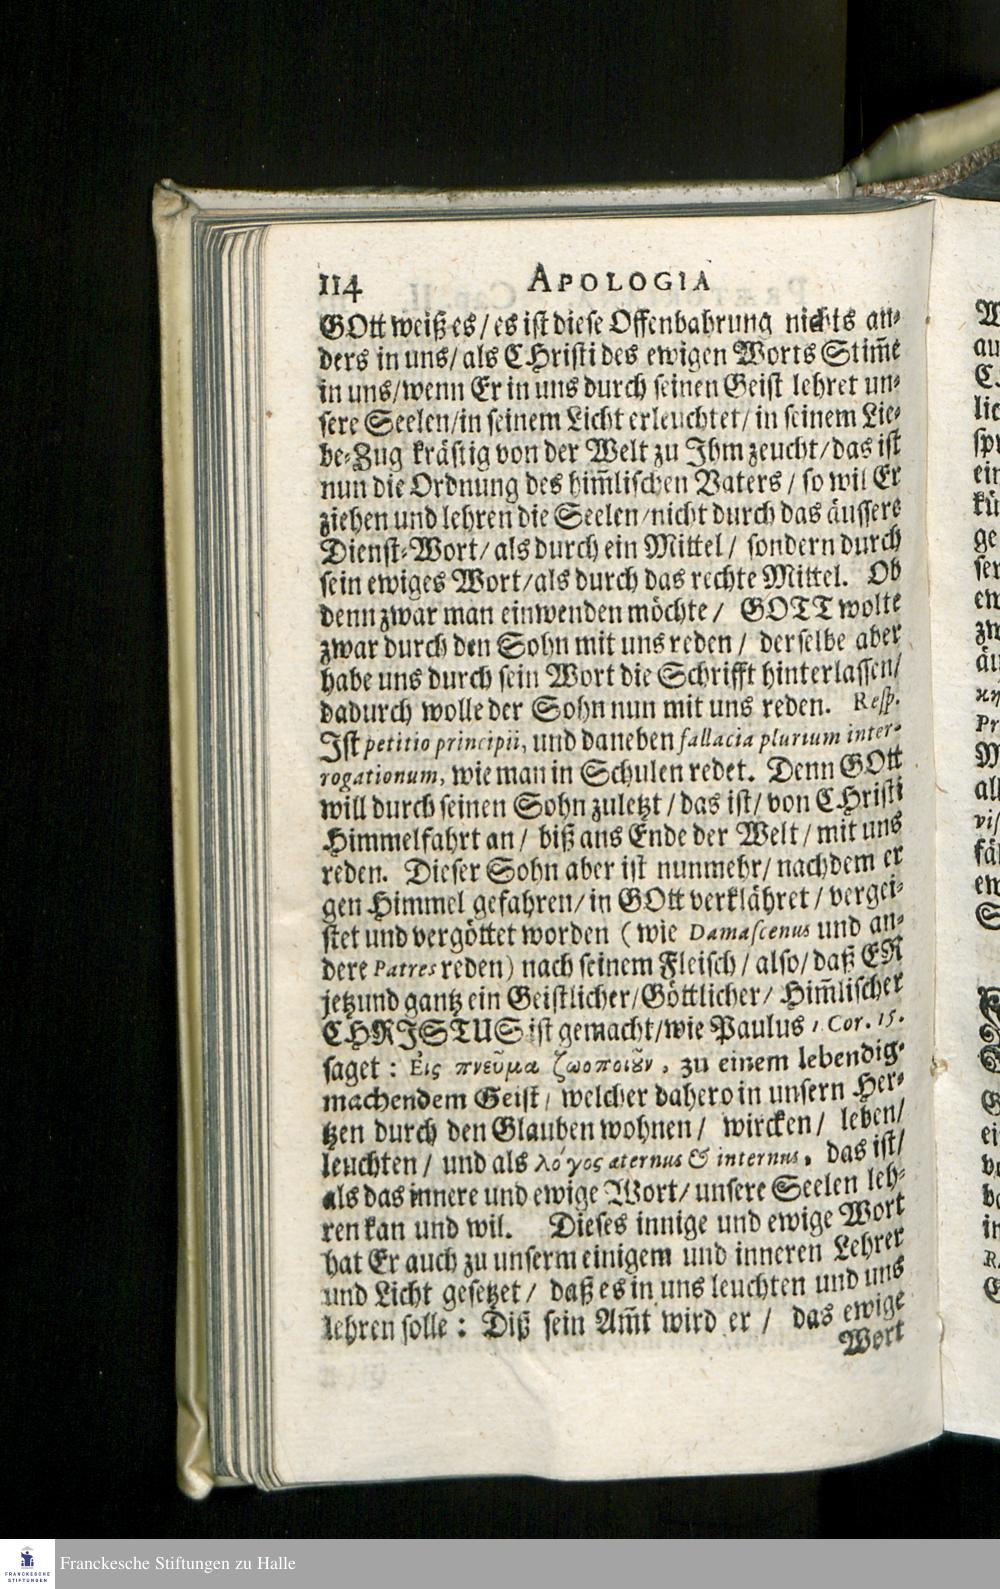 114 APOLOGIA
GOtt weiß es/ es ist diese Offenbahrung nichts an⸗
ders in uns/ als CHristi des ewigen Worts Stim̃e
in uns/ wenn Er in uns durch seinen Geist lehret un⸗
sere Seelen/ in seinem Licht erleuchtet/ in seinem Lie⸗
be⸗Zug kräftig von der Welt zu Ihm zeucht/ das ist
nun die Ordnung des him̃lischen Vaters / so wil Er
ziehen und lehren die Seelen/ nicht durch das äussere
Dienst⸗Wort/ als durch ein Mittel / sondern durch
sein ewiges Wort/ als durch das rechte Mittel. Ob
denn zwar man einwenden möchte / GOTT wolte
zwar durch den Sohn mit uns reden / derselbe aber
habe uns durch sein Wort die Schrifft hinterlassen/
dadurch wolle der Sohn nun mit uns reden. Resp.
Ist petitio principii, und daneben fallacia plurium inter-
rogationum, wie man in Schulen redet. Denn GOtt
will durch seinen Sohn zuletzt / das ist / von CHristi
Himmelfahrt an / biß ans Ende der Welt / mit uns
reden. Dieser Sohn aber ist nunmehr / nachdem er
gen Himmel gefahren/ in GOtt verklähret / vergei⸗
stet und vergöttet worden ( wie Damascenus und an⸗
dere Patres reden) nach seinem Fleisch / also/ daß ER
jetzund gantz ein Geistlicher/ Göttlicher/ Him̃lischer
CHRISTUS ist gemacht/ wie Paulus 1 Cor. 15.
saget : Εἰς πνεῦμα ζωοποιȣ̃ν, zu einem lebendig⸗
machendem Geist / welcher dahero in unsern Her⸗
tzen durch den Glauben wohnen / wircken / leben/
leuchten / und als λόγος æternus & internus, das ist/
als das innere und ewige Wort/ unsere Seelen leh⸗
ren kan und wil. Dieses innige und ewige Wort
hat Er auch zu unserm einigem und inneren Lehrer
und Licht gesetzet / daß es in uns leuchten und uns
lehren solle : Diß sein Am̃t wird er / das ewige
Wort
FRANCKESCHE
STIFTUNGEN
Franckesche Stiftungen zu Halle